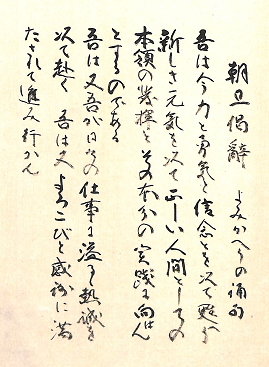 朝旦偈辭 よみかへりの誦句
吾は今力と勇氣と信念とを以て甦へり
新しき元氣を以て正しい人間としての
本領の發揮とその本分の実践に向はん
とするのである
吾は又吾が日々の仕事に溢るゝ熱誠を
以て赴く 吾は又よろこびと感謝に満
たされて進み行かん